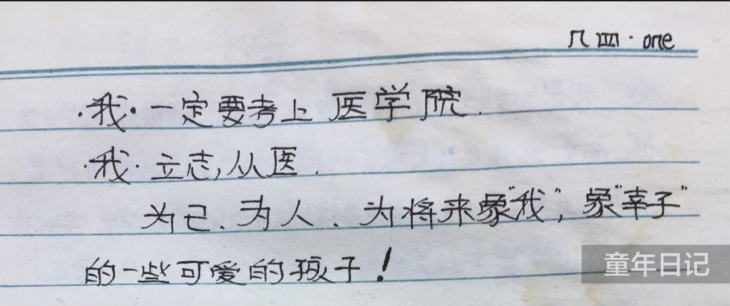 几四·one
·我·一定要考上 医学院.
·我·立志,从医.
为己、为人、为将来象“我”,象“幸子”
的一些可爱的孩子!
童年日记